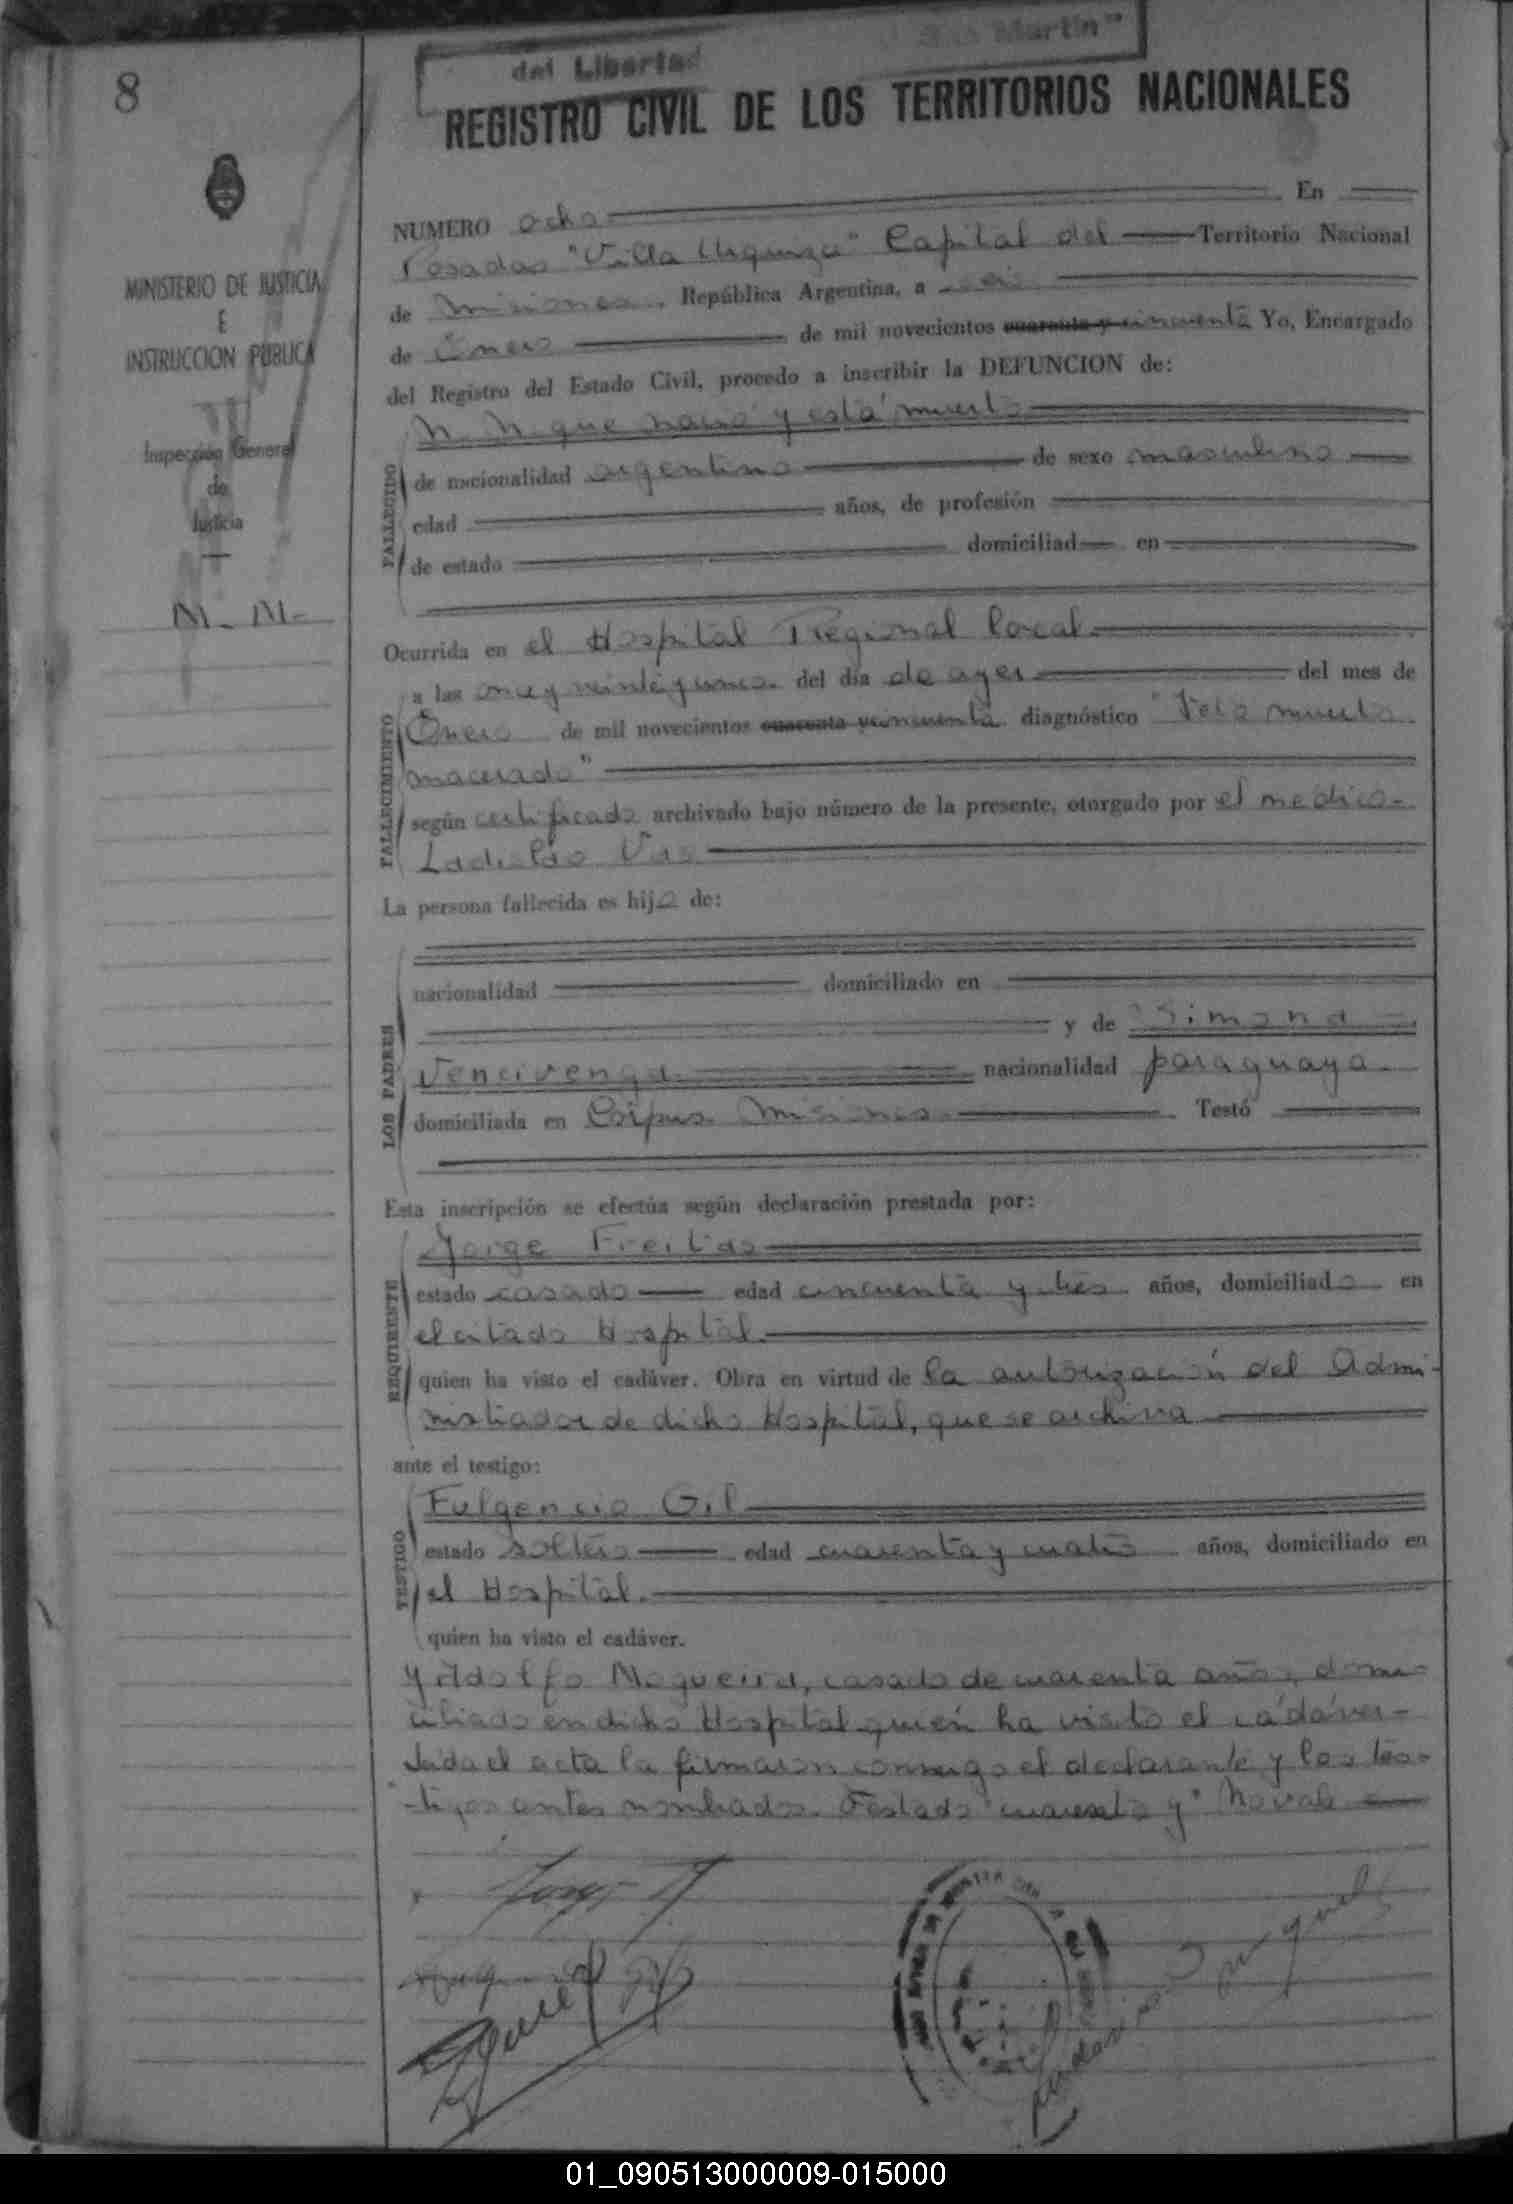 8
del Libertad
San Martín"
REGISTRO CIVIL DE LOS TERRITORIOS NACIONALES
MINISTERIO DE JUSTICIA
E
INSTRUCCION PUBLICA
Inspección General
de
Justicia
N. N.
NUMERO ocho En
Posadas "Villa Urquiza" Capital del Territorio Nacional
de Misiones. República Argentina, a seis
de Enero de mil novecientos cuarenta y cincuenta Yo, Encargado
del Registro del Estado Civil, procedo a inscribir la DEFUNCION de:
N. N. que nació y está muerto
FALLECIDO
de nacionalidad argentino de sexo masculino
edad años, de profesión
de estado domiciliad en
Ocurrida en el Hospital Regional local.
FALLECIMIENTO
a las once y veinte y cinco del día de ayer del mes de
Enero de mil novecientos cuarenta y cincuenta diagnóstico "Feto muerto
macerado"
según certificado archivado bajo número de la presente, otorgado por el médico
Ladislao
La persona fallecida es hijo de:
LOS PADRES
nacionalidad domiciliado en
y de Simona
Vencivenga nacionalidad paraguaya.
domiciliada en Corpus Misiones Testó
Esta inscripción se efectúa según declaración prestada por:
REQUIRENTE
Jorge Freitas
estado casado edad cincuenta y tres años, domiciliado en
el citado Hospital.
quien ha visto el cadáver. Obra en virtud de la autorización del Admi-
nistrador de dicho Hospital, que se archiva
ante el testigo:
TESTIGO
Fulgencio Gil
estado soltero edad cuarenta y cuatro años, domiciliado en
el Hospital.
quien ha visto el cadáver.
y Adolfo Nogueira, casado de cuarenta años, domi-
ciliado en dicho Hospital quién ha visto el cadáver-
Leida el acta la firmaron conmigo el declarante y los tes-
tigos antes nombrados. Testado "cuarenta y" No vale
01_090513000009-015000